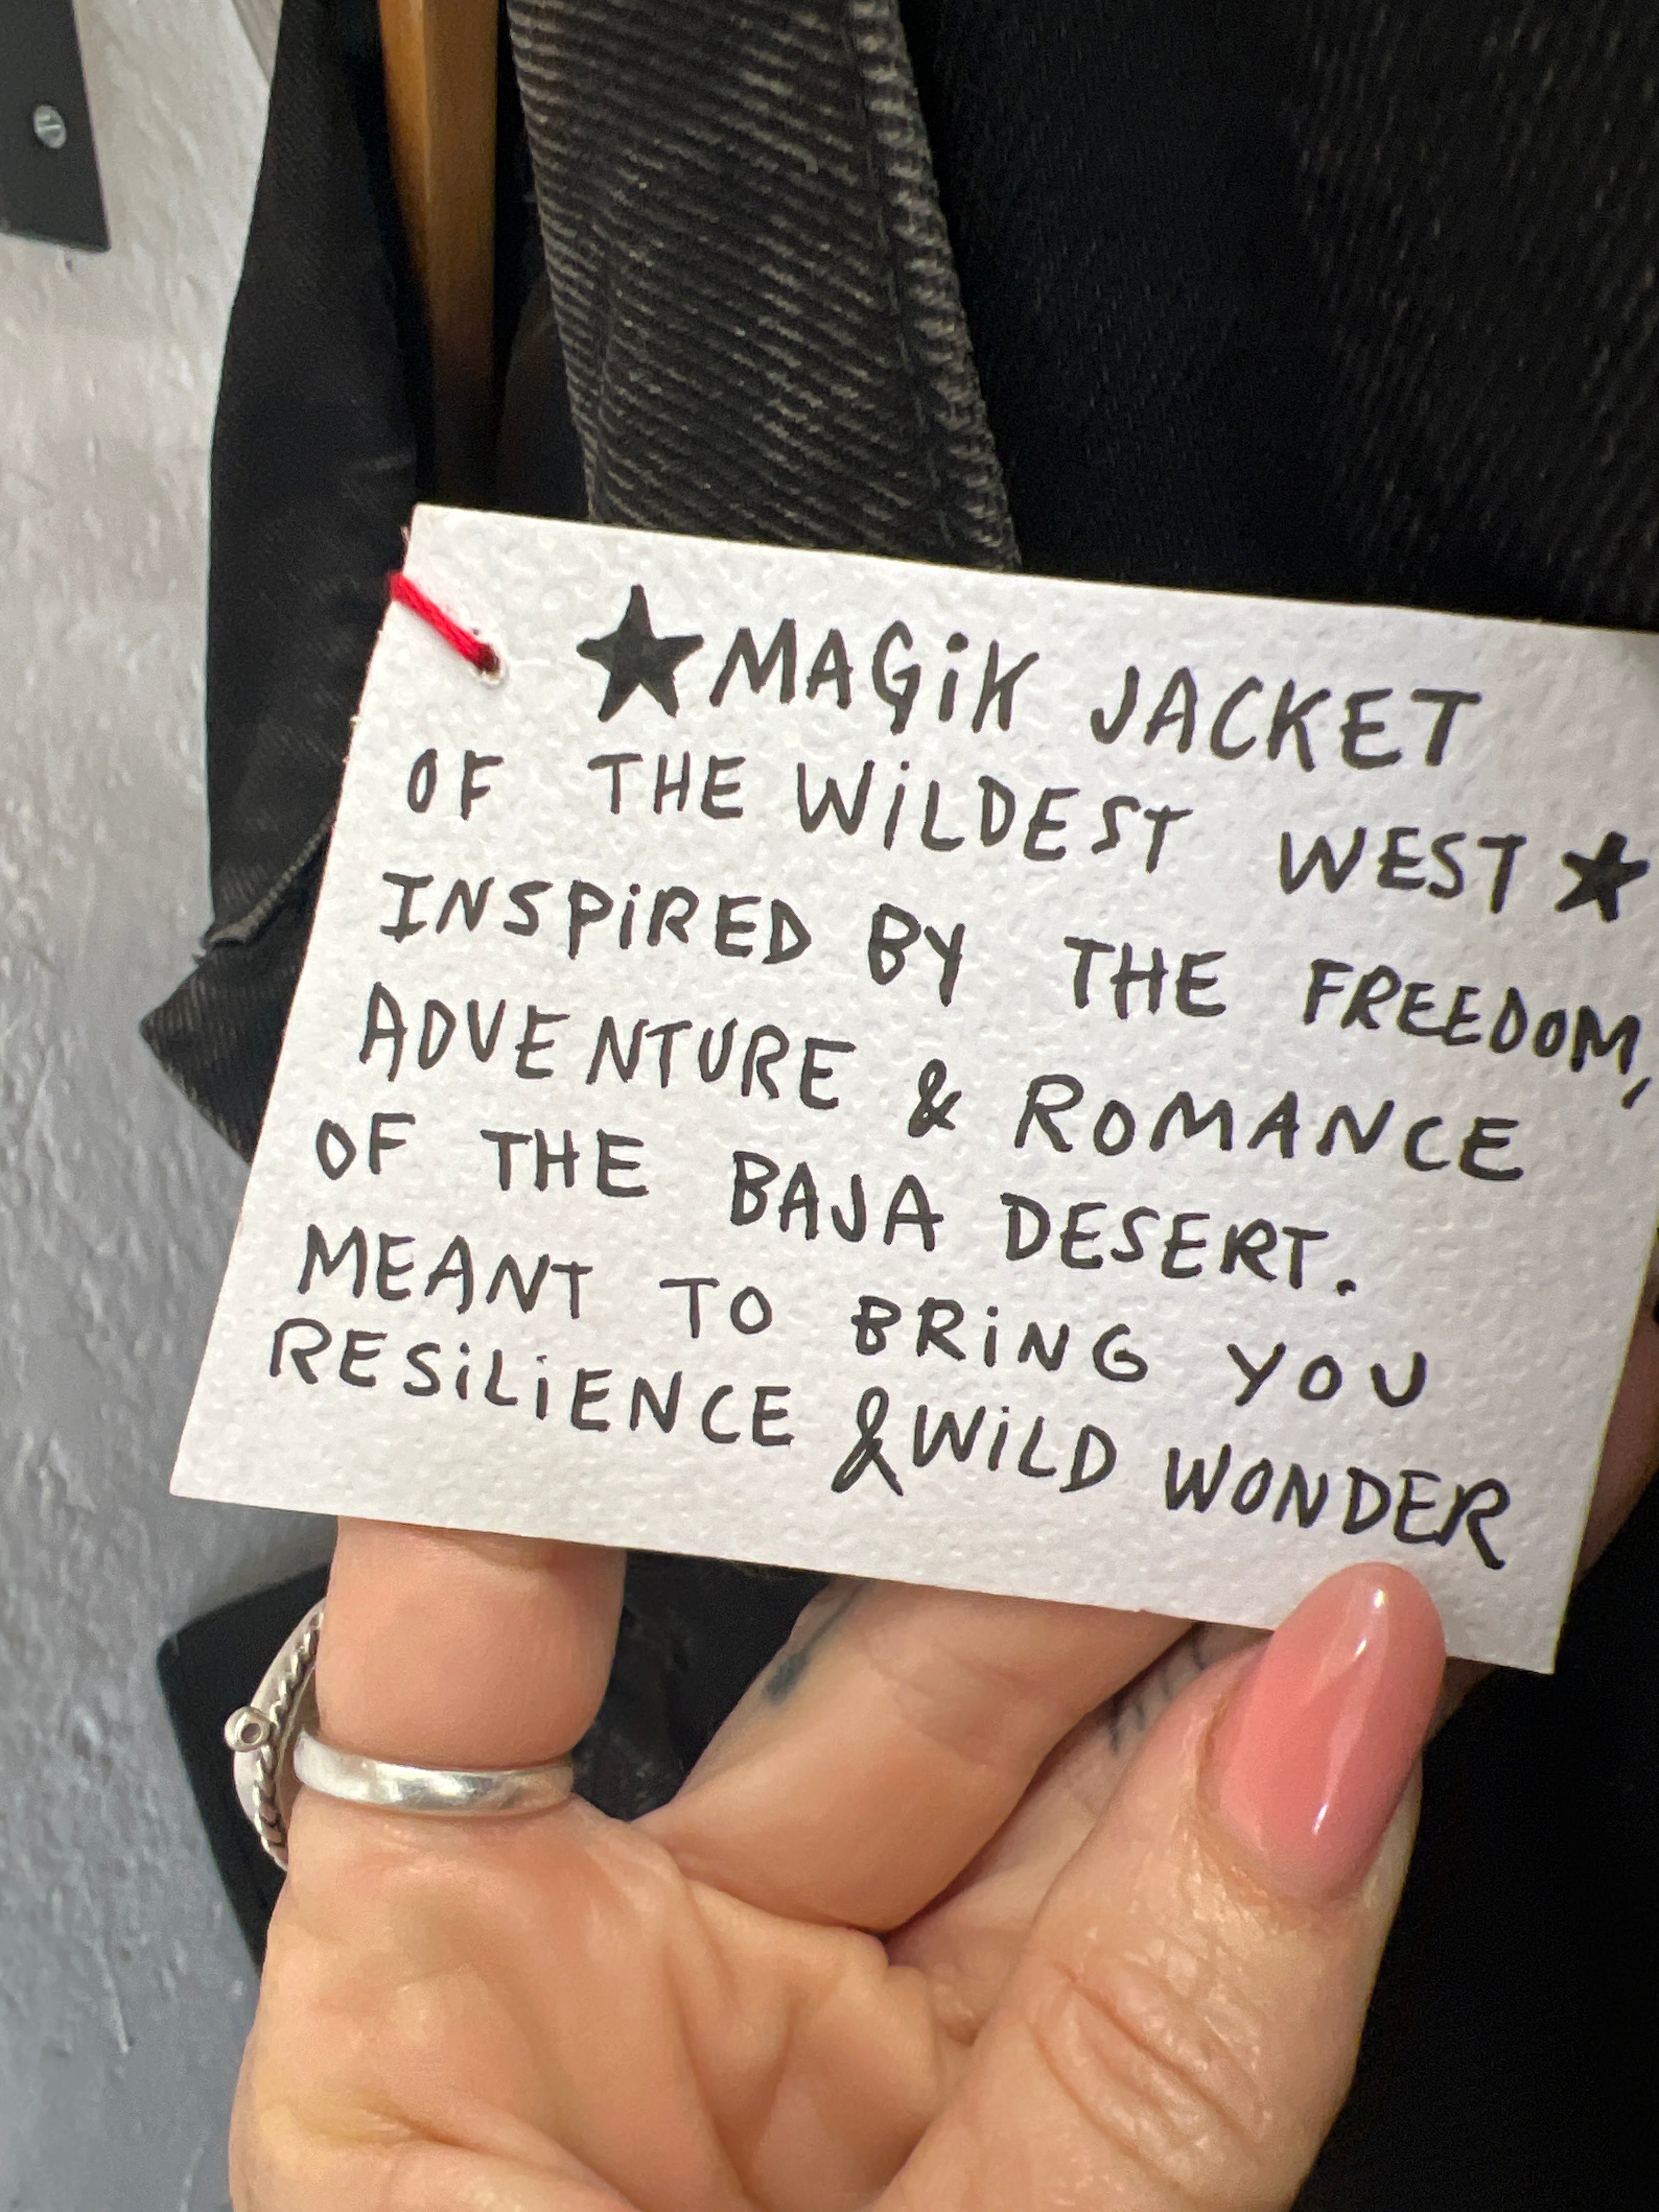 ★MAGiK JACKET
OF THE WiLDEST WEST★
INSPiRED BY THE FREEDOM,
ADVENTURE & ROMANCE
OF THE BAJA DESERT.
MEANT TO BRiNG YOU
RESiLiENCE & WiLD WONDER